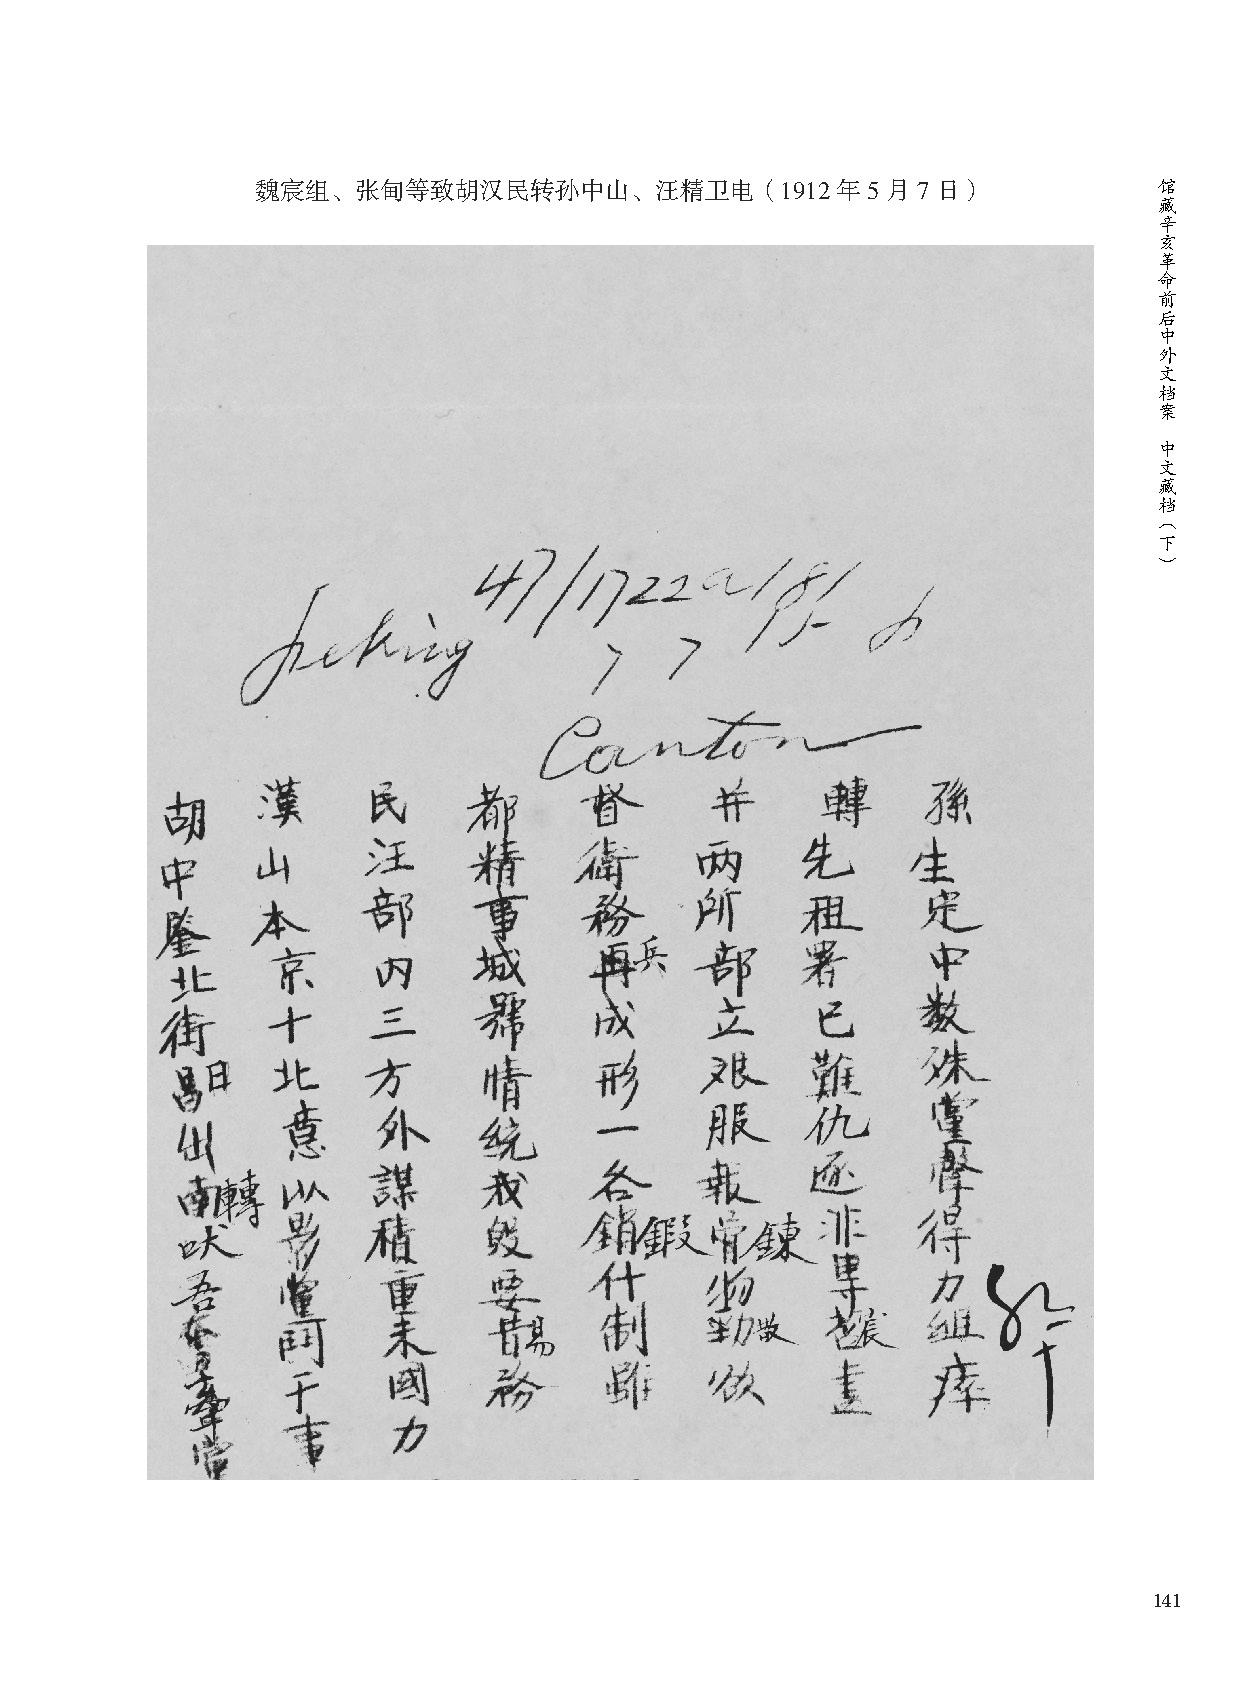 魏宸组、张甸等致胡汉民转孙中山、汪精卫电（1912年5月7日）
馆藏辛亥革命前后中外文档案 中文藏档（下）
47/1722a/8/5
Peking 7 7
Canton
胡漢民都督并轉孫
中山汪精衛两先生
鑒本部事務所租定
北京内城再兵部署中
街十三號成立已数
昌日北方情形艰難殊
出意外統一服仇黨
南轉以謀我各報逐聲
吠影積毁銷鍛骨鍊非得
吾黨重要什物專力
鬥未昔易制組
干國務雖欲畫瘁
事力
141